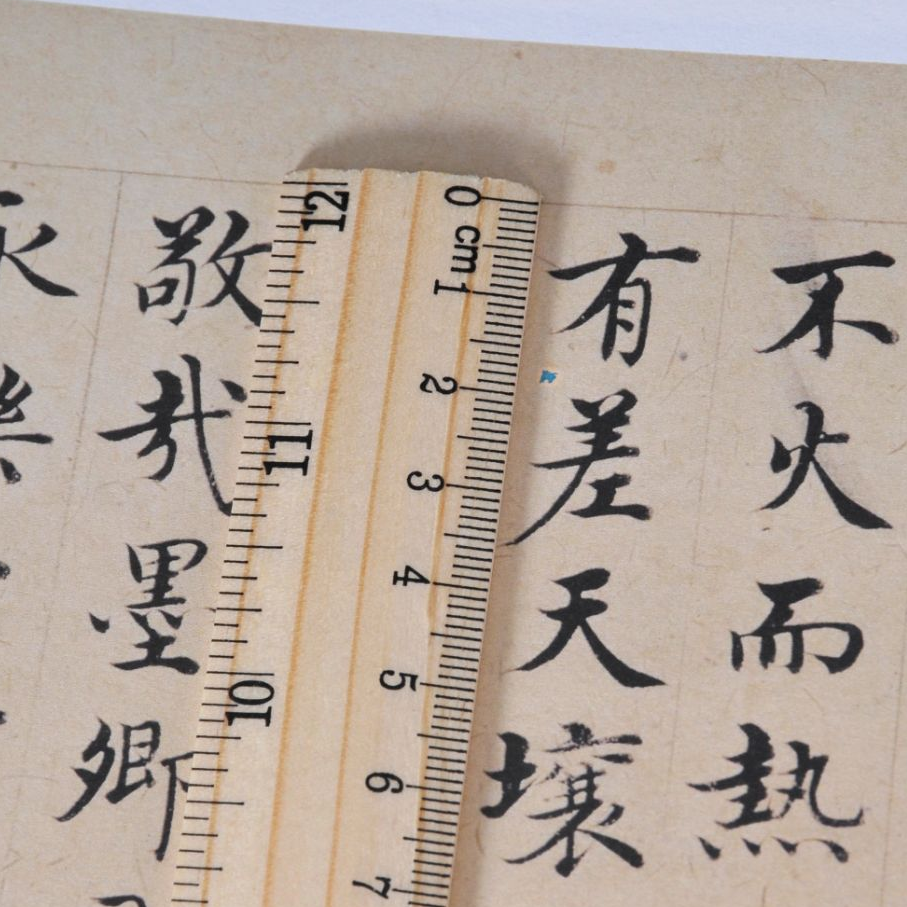 不火而熱
有差天壤
敬哉墨卿
永樂
12
11
10
0 cm
1
2
3
4
5
6
7